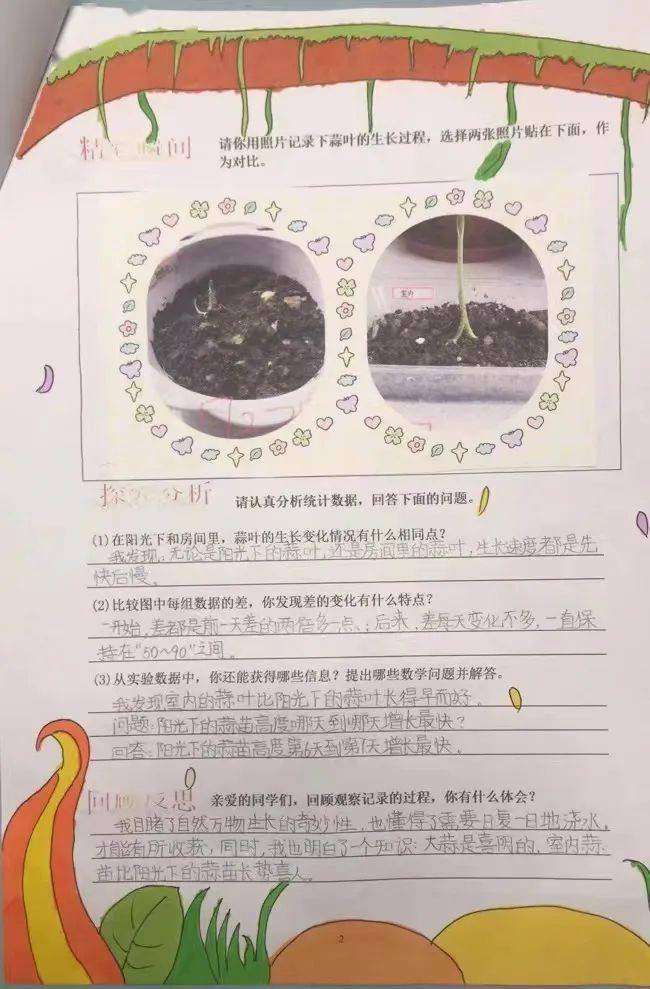 精彩瞬间
请你用照片记录下蒜叶的生长过程，选择两张照片贴在下面，作
为对比。
室外
探究分析
请认真分析统计数据，回答下面的问题。
(1)在阳光下和房间里，蒜叶的生长变化情况有什么相同点？
我发现：无论是阳光下的蒜叶，还是房间里的蒜叶，生长速度者都是先
快后慢。
(2)比较图中每组数据的差，你发现差的变化有什么特点？
一开始，差都是前一天差的两倍多一点；后来，差每天变化不多，一直保
持在"50~90"之间。
(3)从实验数据中，你还能获得哪些信息？提出哪些数学问题并解答。
我发现室内的蒜叶比阳光下的蒜叶长得早而好。
问题：阳光下的蒜苗高度哪天到哪天增长最快？
回答：阳光下的蒜苗高度第6天到第7天增长最快。
回顾反思
亲爱的同学们，回顾观察记录的过程，你有什么体会？
我目睹了自然万物生长的奇妙性，也懂得了需要日复一日地浇水，
才能有所收获，同时，我也明白了一个知识：大蒜是喜阴的，室内蒜
苗比阳光下的蒜苗长势喜人。
2